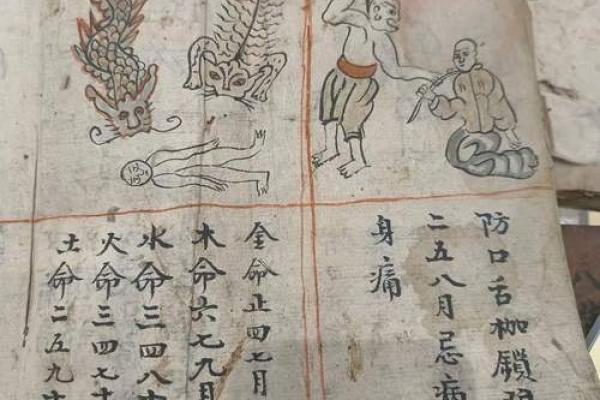 防口舌枷鎖
二五八月忌病
身痛
金命正四七月
木命六七九月
水命三四八
火命三四七十
土命二五九